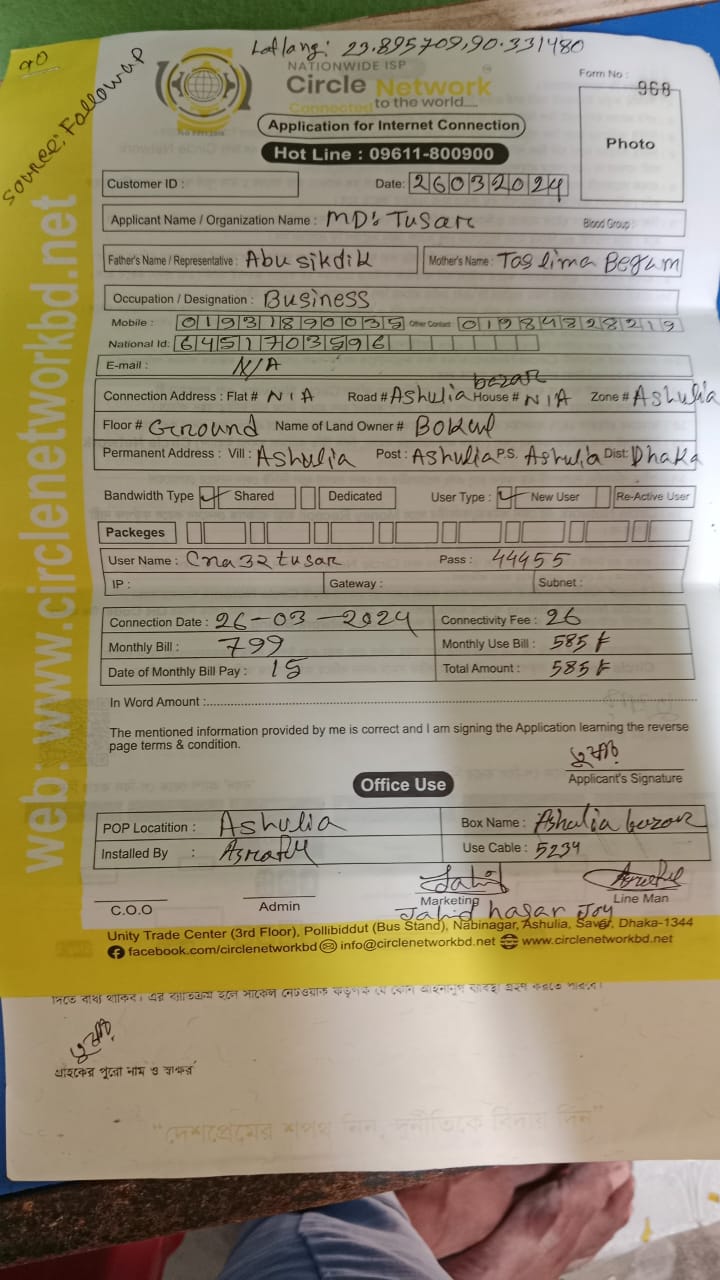 90
Source: Followap
Latlang: 23.895709,90.331480
NATIONWIDE ISP
Circle Network
Connected to the world....
Form No :
968
Photo
Application for Internet Connection
Hot Line : 09611-800900
Customer ID :
Date: 26032024
Applicant Name / Organization Name : MD: Tusar
Blood Group :
Father's Name / Representative : Abu sikdik
Mother's Name : Taslima Begum
Occupation / Designation : Business
Mobile : 01931890035 Other Contact : 01984828219
National Id: 6451703596
E-mail : N/A
Connection Address : Flat # N/A Road # Ashulia bazar House # N/A Zone # Ashulia
Floor # Ground Name of Land Owner # Bokul
Permanent Address : Vill : Ashulia Post : Ashulia P.S. Ashulia Dist: Dhaka
Bandwidth Type Shared Dedicated User Type : New User Re-Active User
Packeges
User Name : Cna32tusar Pass : 44455
IP : Gateway : Subnet :
Connection Date : 26-03-2024 Connectivity Fee : 26
Monthly Bill : 799 Monthly Use Bill : 585 ৳
Date of Monthly Bill Pay : 15 Total Amount : 585 ৳
In Word Amount :
The mentioned information provided by me is correct and I am signing the Application learning the reverse
page terms & condition.
তুষার
Applicant's Signature
Office Use
POP Locatition : Ashulia Box Name : Ashulia bazar
Installed By : Asraful Use Cable : 5234
Jahid
C.O.O Admin Marketing Line Man
Jahid hasan Joy
Unity Trade Center (3rd Floor), Pollibiddut (Bus Stand), Nabinagar, Ashulia, Savar, Dhaka-1344
facebook.com/circlenetworkbd info@circlenetworkbd.net www.circlenetworkbd.net
web: www.circlenetworkbd.net
দিতে বাধ্য থাকিব। এর ব্যতিক্রম হলে সার্কেল নেটওয়ার্ক কর্তৃপক্ষ যে কোন আইনানুগ ব্যবস্থা গ্রহণ করতে পারবে।
তুষার
গ্রাহকের পুরো নাম ও স্বাক্ষর
"দেশপ্রেমের শপথ নিন, দুর্নীতিকে বিদায় দিন"